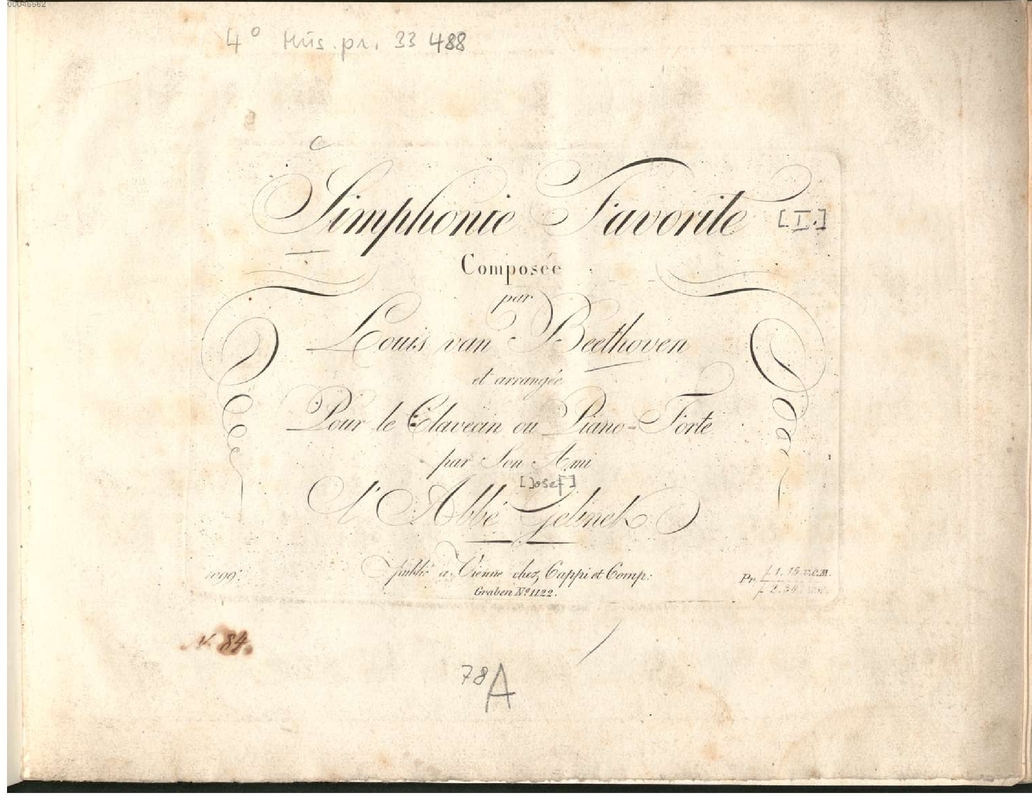 4° Mus. pr. 33 488
Simphonie Favorite [I.]
Composée
par
Louis van Beethoven
et arrangée
Pour le Clavecin ou Piano-Forte
par Son Ami
[Josef]
l'Abbé Gelinek
publié a Vienne chez, Cappi et Comp:
Graben Nº 1122.
Pr.
N. 84.
78 A